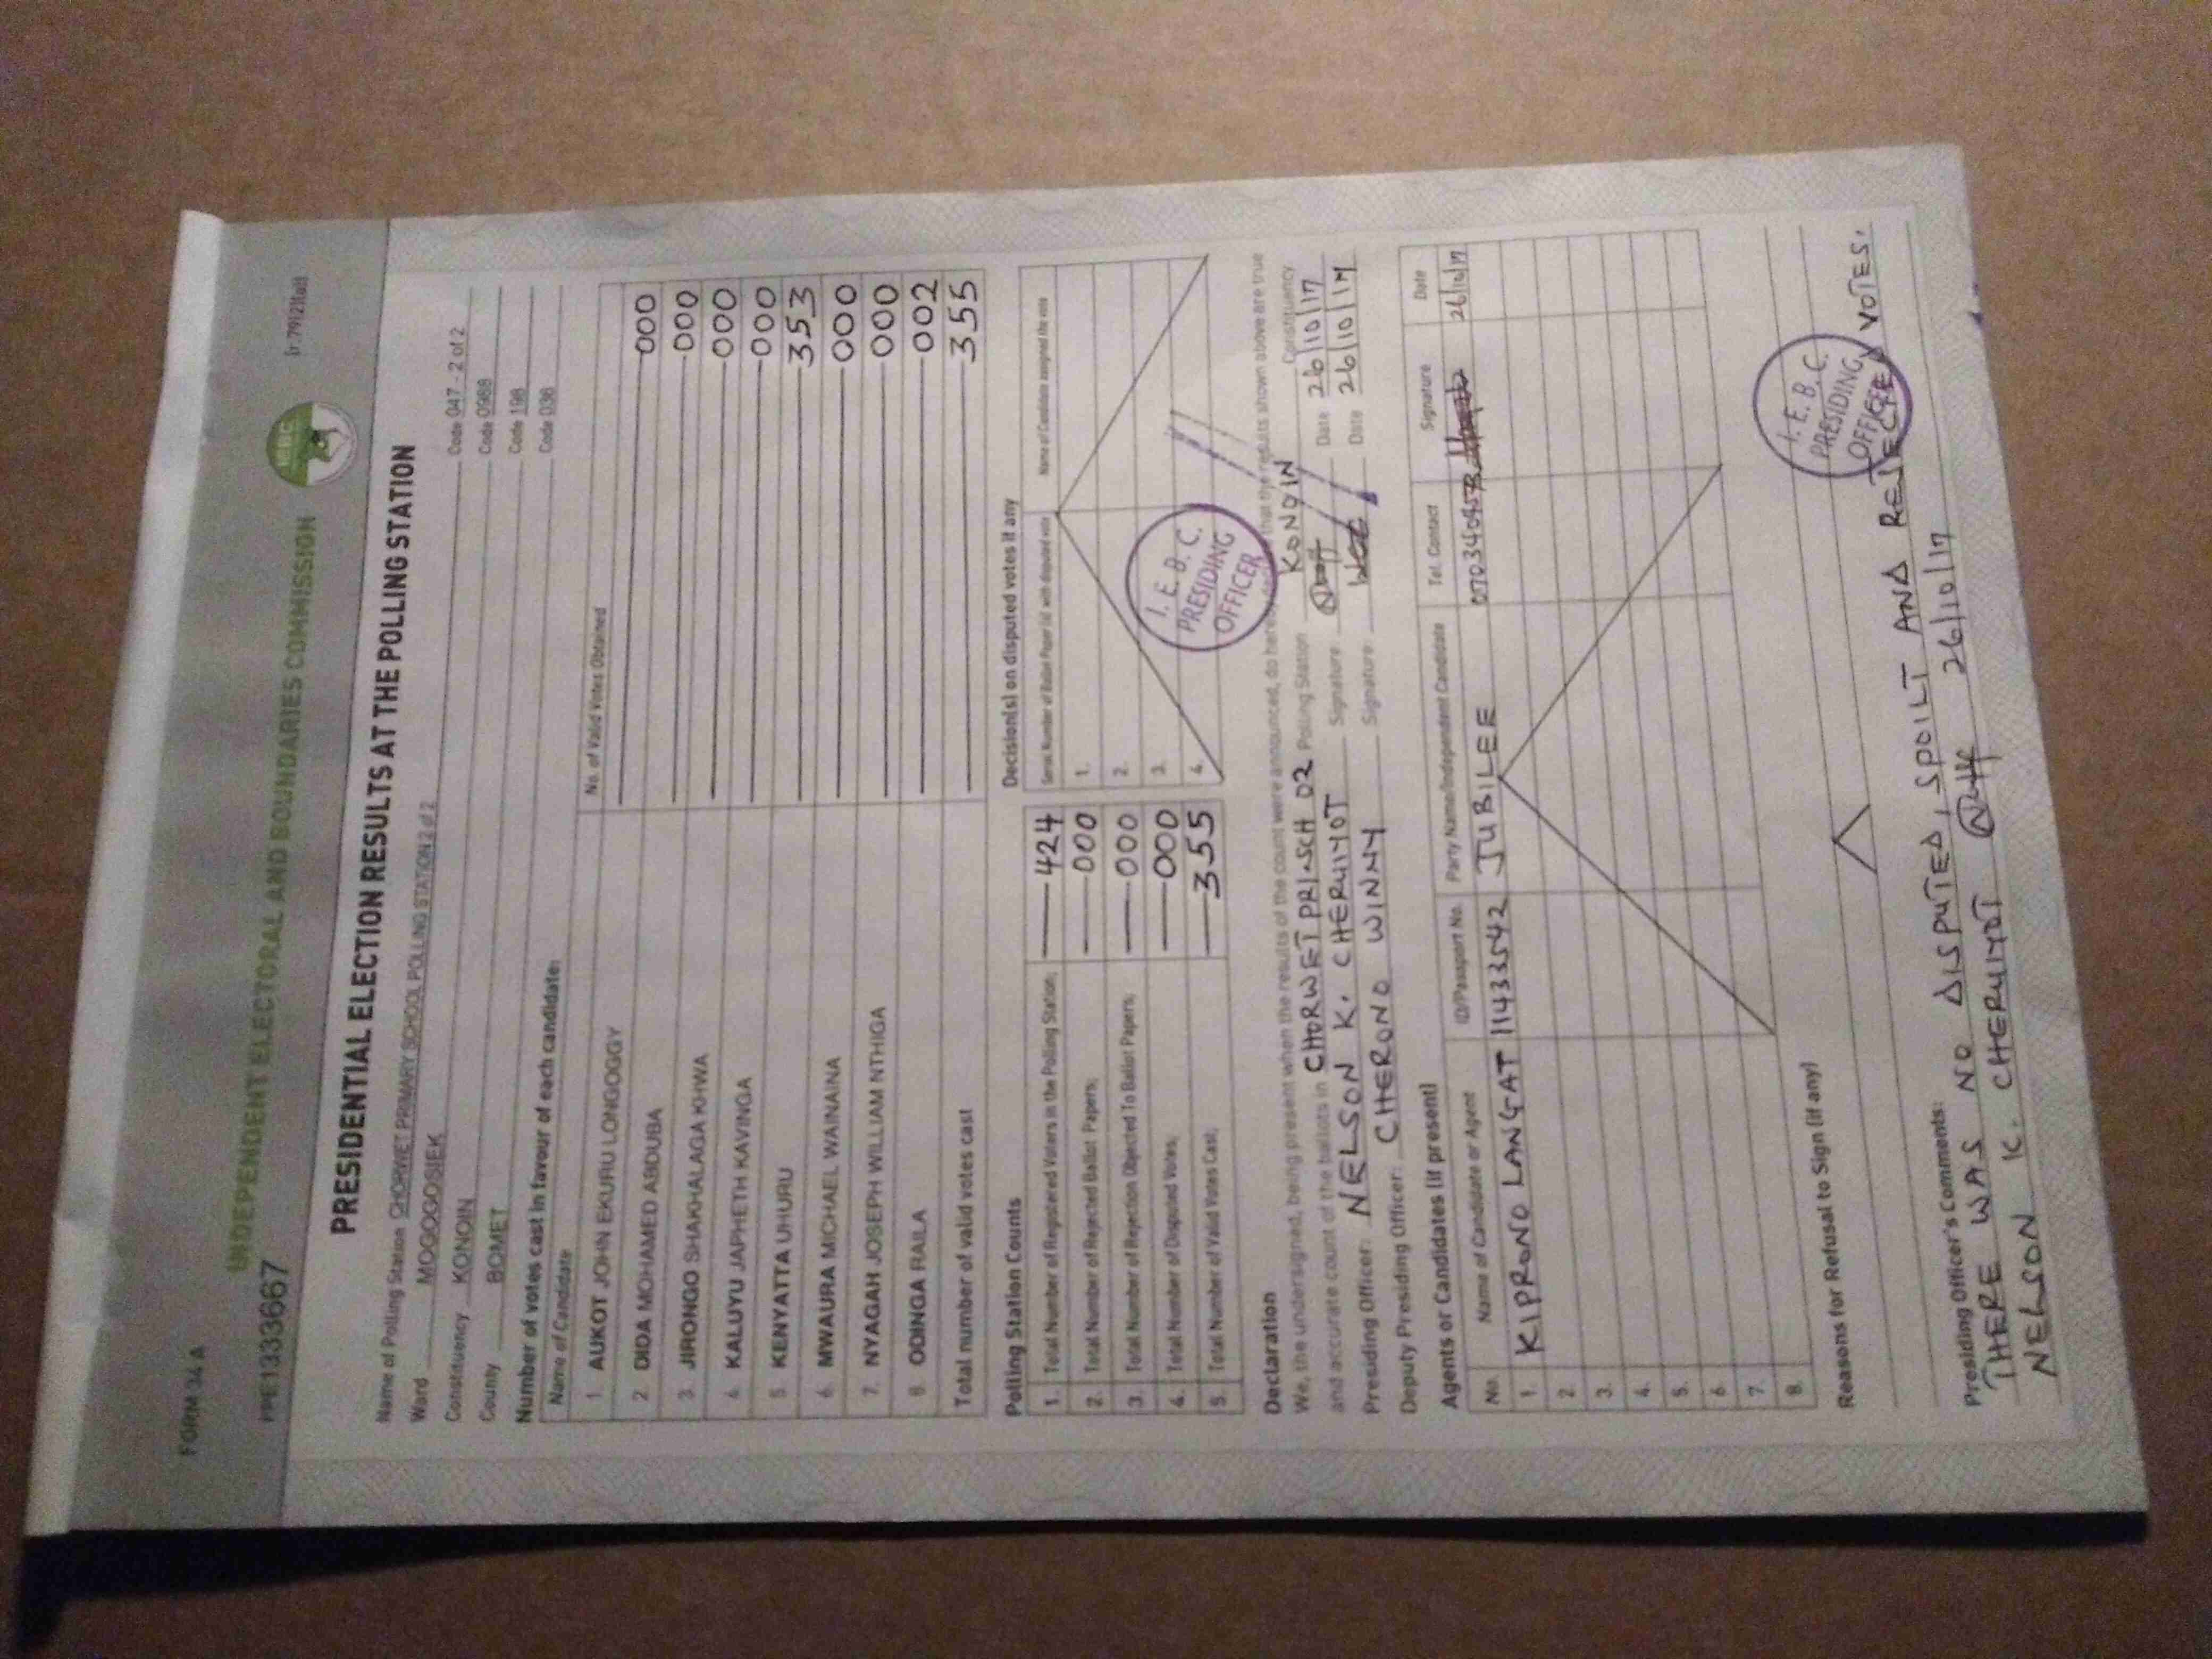 FORM 34 A
PPE1333667
INDEPENDENT ELECTORAL AND BOUNDARIES COMMISSION
IEBC
PRESIDENTIAL ELECTION RESULTS AT THE POLLING STATION
Name of Polling Station CHORWET PRIMARY SCHOOL POLLING STATION 2 of 2 Code 047 - 2 of 2
Ward MOGOGOSIEK Code 0988
Constituency KONOIN Code 198
County BOMET Code 036
Number of votes cast in favour of each candidate:
Name of Candidate No. of Valid Votes Obtained
1. AUKOT JOHN EKURU LONGOGGY 000
2. DIDA MOHAMED ABDUBA 000
3. JIRONGO SHAKHALAGA KHWA 000
4. KALUYU JAPHETH KAVINGA 000
5. KENYATTA UHURU 353
6. MWAURA MICHAEL WAINAINA 000
7. NYAGAH JOSEPH WILLIAM NTHIGA 000
8. ODINGA RAILA 002
Total number of valid votes cast 355
Polling Station Counts
1. Total Number of Registered Voters in the Polling Station; 424
2. Total Number of Rejected Ballot Papers; 000
3. Total Number of Rejection Objected To Ballot Papers; 000
4. Total Number of Disputed Votes; 000
5. Total Number of Valid Votes Cast; 355
Decision(s) on disputed votes if any
Serial Number of Ballot Paper (s) with disputed vote Name of Candidate assigned the vote
1.
2.
3.
4.
I. E. B. C.
PRESIDING
OFFICER
Declaration
We, the undersigned, being present when the results of the count were announced, do hereby that the results shown above are true
and accurate count of the ballots in CHORWET PRI. SCH 02 Polling Station KONOIN Constituency
Presiding Officer: NELSON K. CHERUIYOT Signature: Date 26/10/17
Deputy Presiding Officer: CHERONO WINNY Signature: Date 26/10/17
Agents or Candidates (if present)
No. Name of Candidate or Agent ID/Passport No. Party Name/Independent Candidate Tel. Contact Signature Date
1. KIPRONO LANGAT 11433542 JUBILEE 26/10/17
2.
3.
4.
5.
6.
7.
8.
Reasons for Refusal to Sign (if any)
I. E. B. C.
PRESIDING
OFFICER
Presiding Officer's Comments:
THERE WAS NO DISPUTED, SPOILT AND REJECTED VOTES.
NELSON K. CHERUIYOT 26/10/17